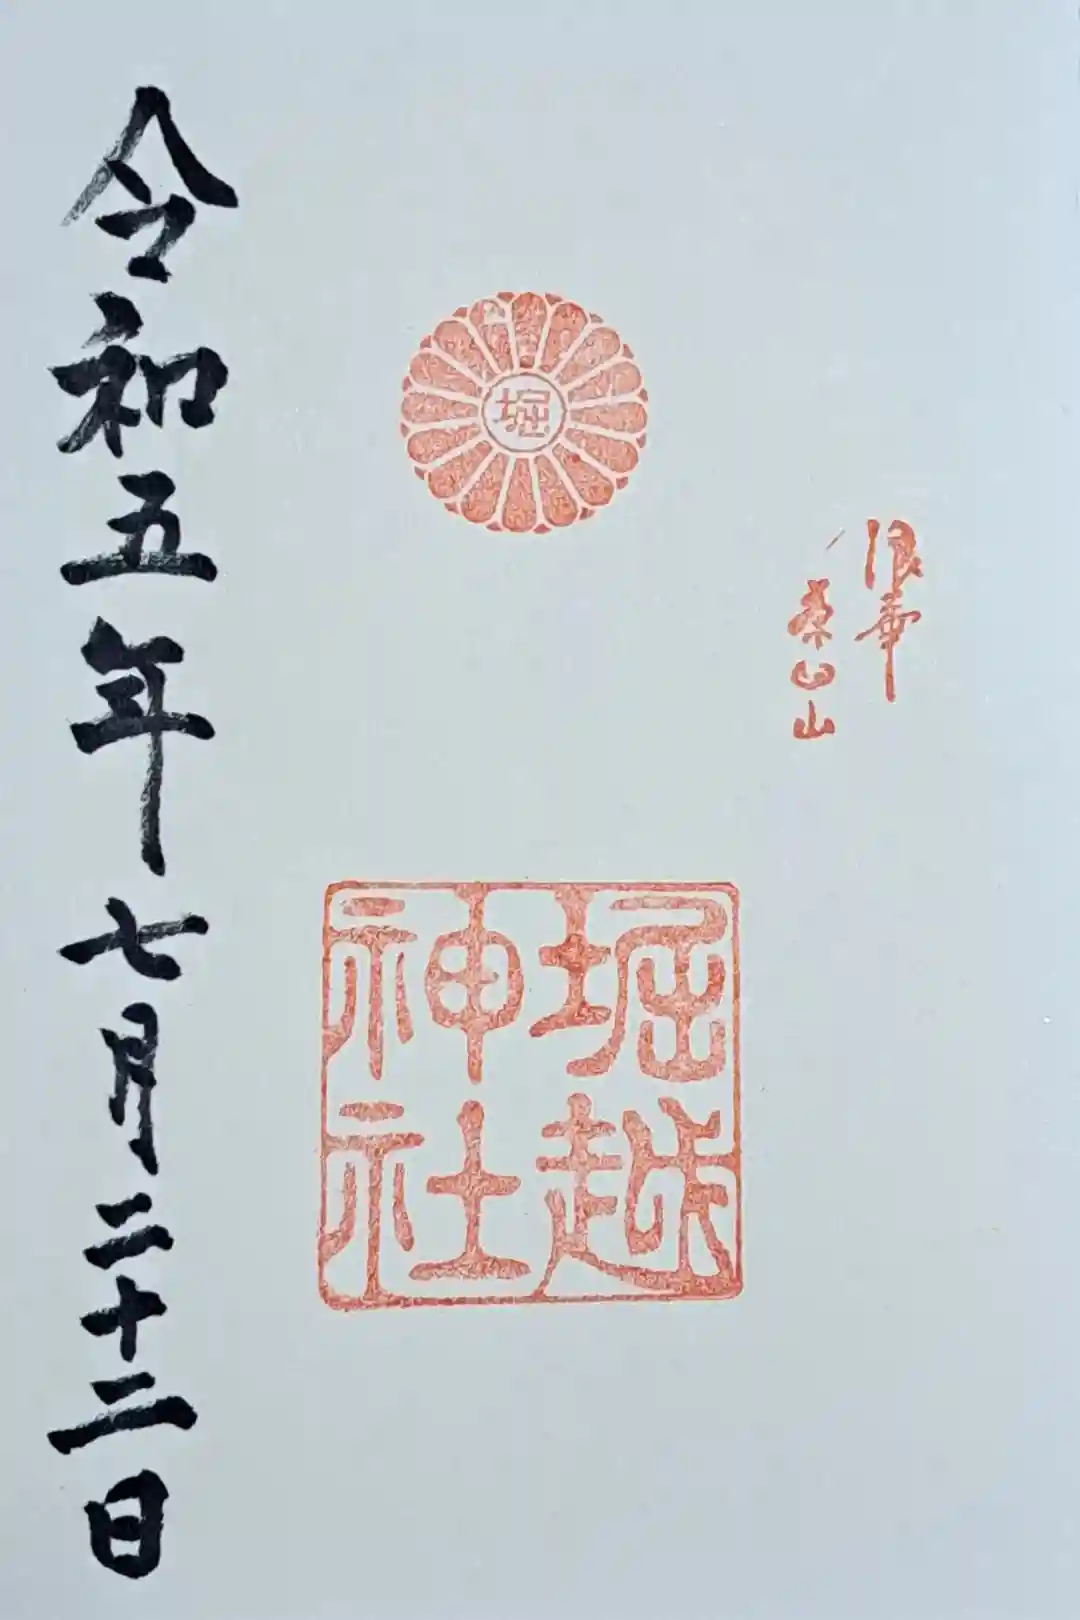 浪華
茶臼山
堀
堀越
神社
令和五年七月二十二日